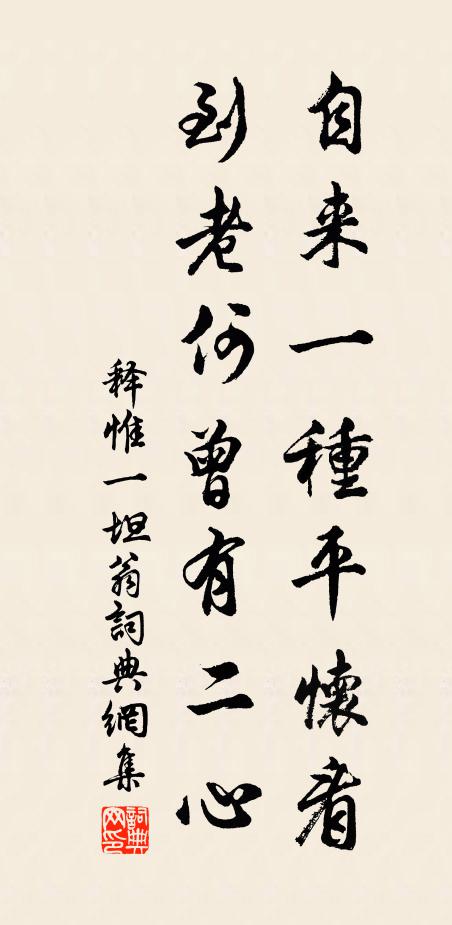 自来一種平懷看
到老何曾有二心
释惟一坦翁詞典網集
詞典网印